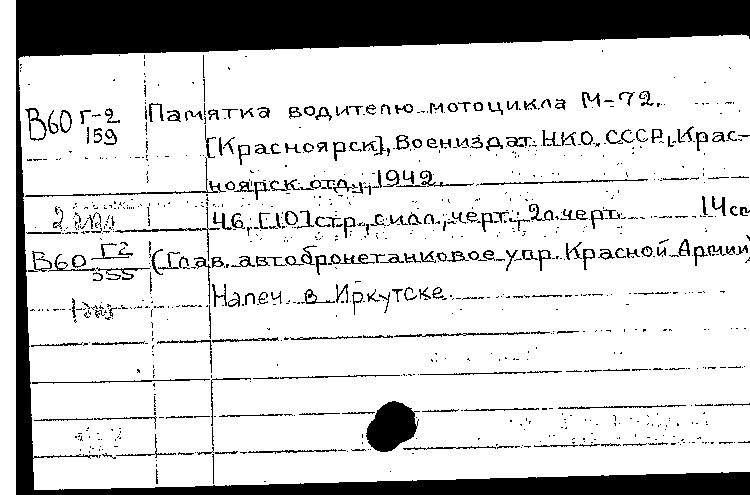 В60 Г-2/159 Памятка водителю мотоцикла М-72.
[Красноярск], Воениздат НКО СССР, Крас-
ноярск. отд., 1942.
46, [10] стр., с илл., черт.; 2 л. черт. 14 см
В60 Г2/355 (Глав. автобронетанковое упр. Красной Армии)
Напеч. в Иркутске.